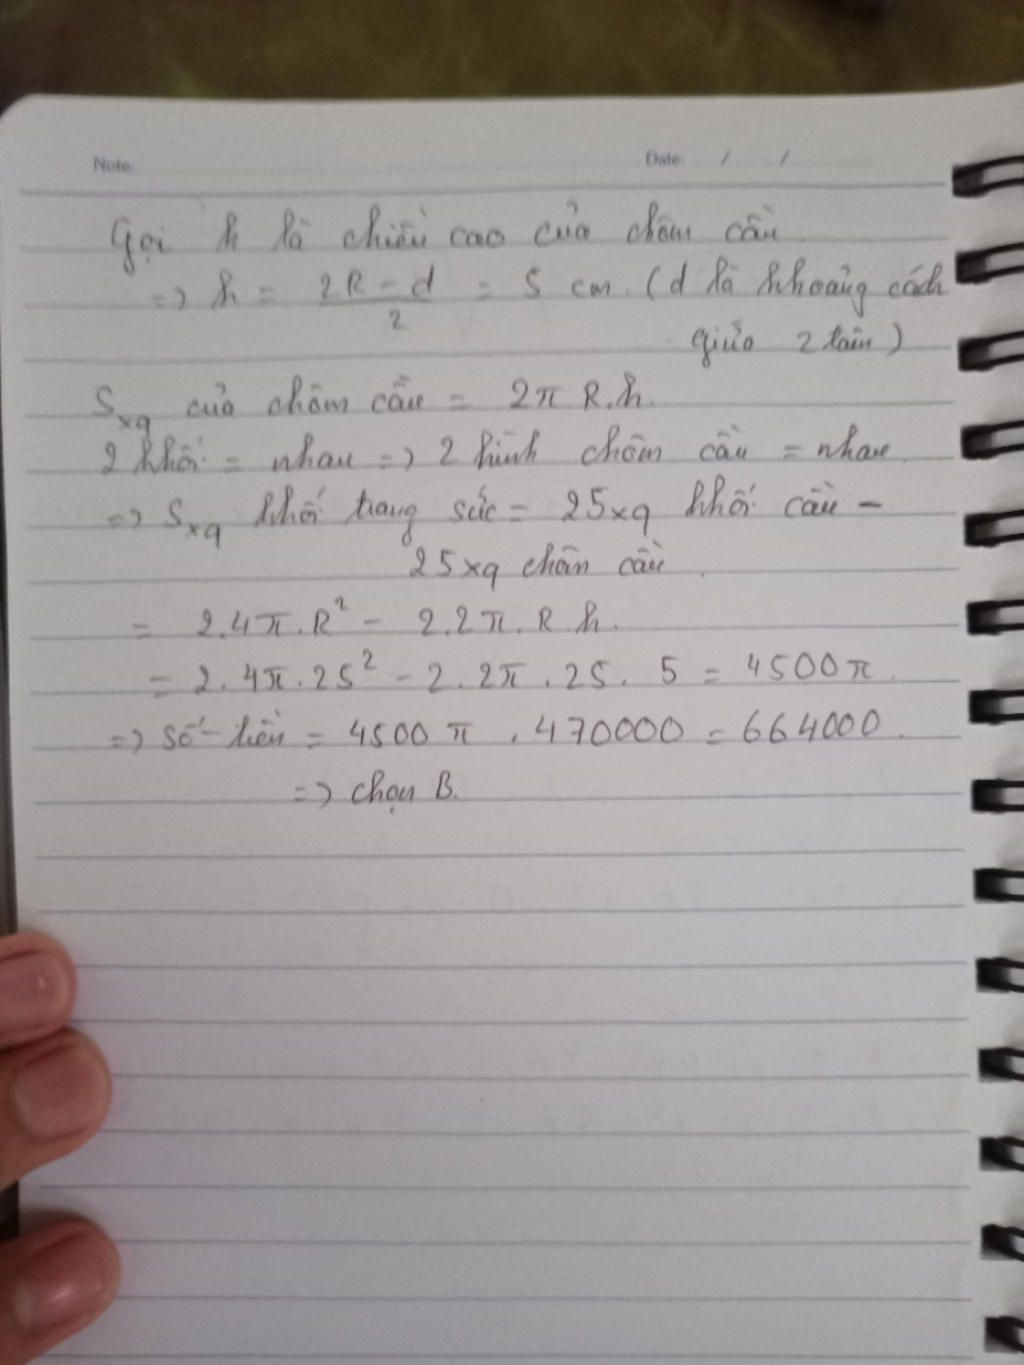 Note: Date: / /
Gọi h là chiều cao của chỏm cầu.
=> h = (2R - d)/2 = 5 cm. (d là khoảng cách
giữa 2 tâm)
Sxq của chỏm cầu = 2π R.h.
2 khối = nhau => 2 hình chỏm cầu = nhau.
=> Sxq khối trang sức = 2Sxq khối cầu -
2Sxq chỏm cầu.
= 2.4π.R² - 2.2π.R.h.
= 2.4π.25² - 2.2π.25.5 = 4500π.
=> số tiền = 4500π . 470000 = 664000.
=> chọn B.